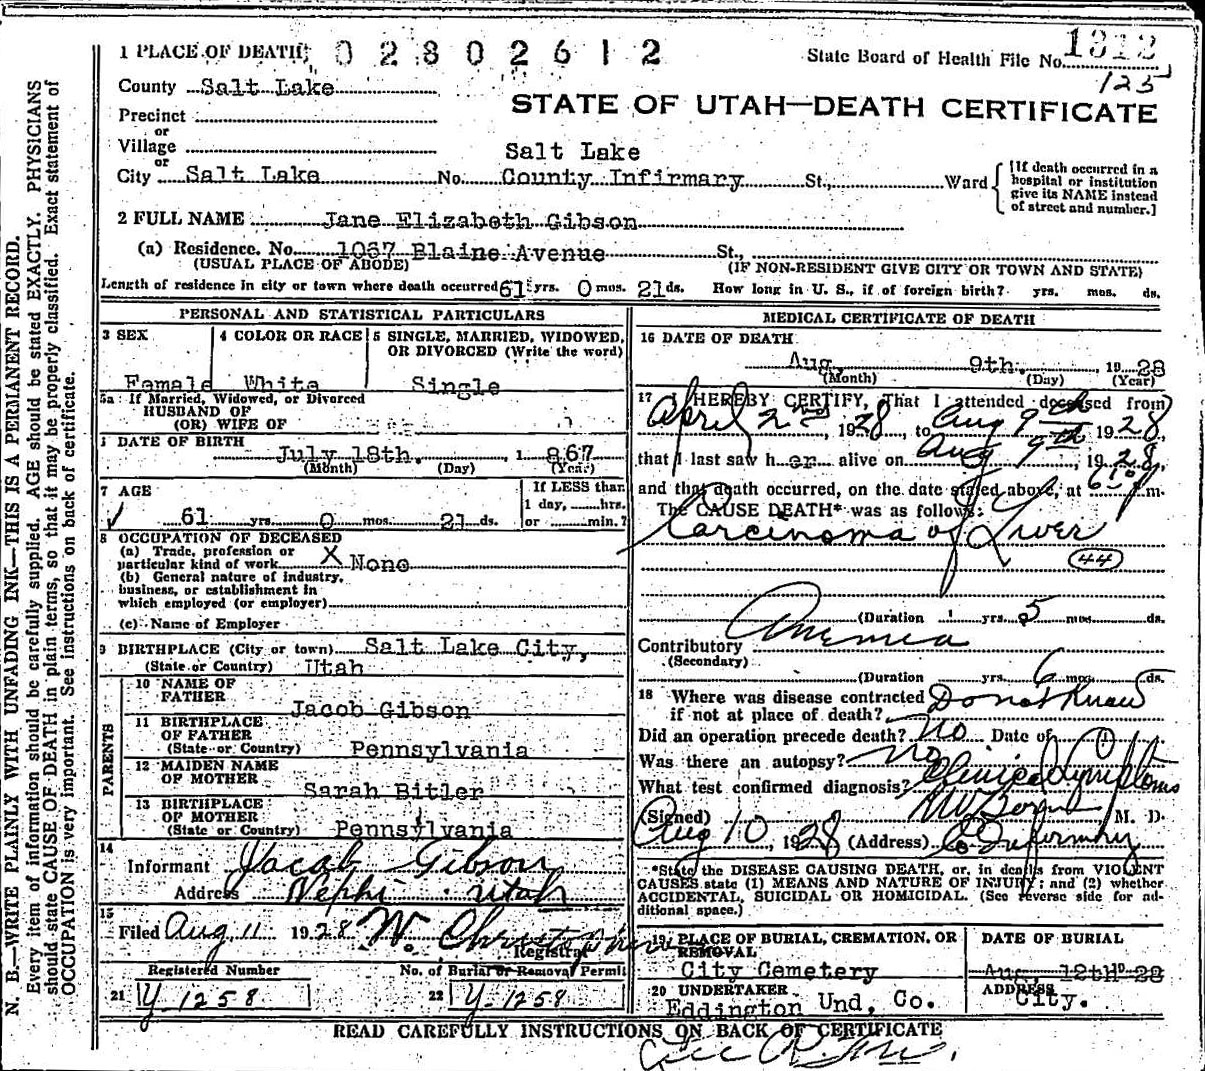 1 PLACE OF DEATH; 02802612 State Board of Health File No. 1312
125
County Salt Lake
STATE OF UTAH—DEATH CERTIFICATE
Precinct
or
Village
or
Salt Lake
City Salt Lake No. County Infirmary St., Ward {[If death occurred in a hospital or institution give its NAME instead of street and number.]
2 FULL NAME Jane Elizabeth Gibson
(a) Residence. No. 1067 Blaine Avenue St.,
(USUAL PLACE OF ABODE) (IF NON-RESIDENT GIVE CITY OR TOWN AND STATE)
Length of residence in city or town where death occurred 61 yrs. 0 mos. 21 ds. How long in U. S., if of foreign birth? yrs. mos. ds.
PERSONAL AND STATISTICAL PARTICULARS
3 SEX
4 COLOR OR RACE
5 SINGLE, MARRIED, WIDOWED,
OR DIVORCED (Write the word)
Female White Single
5a If Married, Widowed, or Divorced
HUSBAND OF
(OR) WIFE OF
DATE OF BIRTH
July 18th. 1 867
(Month) (Day) (Year)
7 AGE
If LESS than
1 day, hrs.
61 yrs. 0 mos. 21 ds. or min.?
8 OCCUPATION OF DECEASED
(a) Trade, profession or
particular kind of work X None
(b) General nature of industry,
business, or establishment in
which employed (or employer)
(c) Name of Employer
9 BIRTHPLACE (City or town) Salt Lake City,
(State or Country) Utah
PARENTS
10 NAME OF
FATHER
Jacob Gibson
11 BIRTHPLACE
OF FATHER
(State or Country) Pennsylvania
12 MAIDEN NAME
OF MOTHER
Sarah Bitler
13 BIRTHPLACE
OF MOTHER
(State or Country) Pennsylvania
14
Informant Jacob Gibson
Address Nephi Utah
15
Filed Aug 11 1928 W.
Registrar
Registered Number No. of Burial or Removal Permit
21 Y 1258 22 Y-1258
MEDICAL CERTIFICATE OF DEATH
16 DATE OF DEATH
Aug. 9th. 19 28
(Month) (Day) (Year)
17 I HEREBY CERTIFY, That I attended deceased from
April 2nd, 1928, to Aug 9th 1928,
that I last saw her alive on Aug 9th, 1928,
and that death occurred, on the date stated above, at m.
The CAUSE DEATH* was as follows:
Carcinoma of Liver
44
(Duration yrs. 5 mos. ds.
Contributory Anemia
(Secondary)
(Duration yrs. 6 mos. ds.
18 Where was disease contracted
if not at place of death? Do not Know
Did an operation precede death? No Date of 0
Was there an autopsy? no
What test confirmed diagnosis? Clinical Symptoms
(Signed) M. D.
Aug 10, 1928 (Address) Co Infirmary
*State the DISEASE CAUSING DEATH, or, in deaths from VIOLENT
CAUSES state (1) MEANS AND NATURE OF INJURY; and (2) whether
ACCIDENTAL, SUICIDAL OR HOMICIDAL. (See reverse side for ad-
ditional space.)
19 PLACE OF BURIAL, CREMATION, OR
REMOVAL
City Cemetery
DATE OF BURIAL
Aug. 12th 28
20 UNDERTAKER
Eddington Und, Co.
ADDRESS
City.
READ CAREFULLY INSTRUCTIONS ON BACK OF CERTIFICATE
N. B.—WRITE PLAINLY WITH UNFADING INK—THIS IS A PERMANENT RECORD.
Every item of information should be carefully supplied. AGE should be stated EXACTLY. PHYSICIANS
should state CAUSE OF DEATH in plain terms, so that it may be properly classified. Exact statement of
OCCUPATION is very important. See instructions on back of certificate.